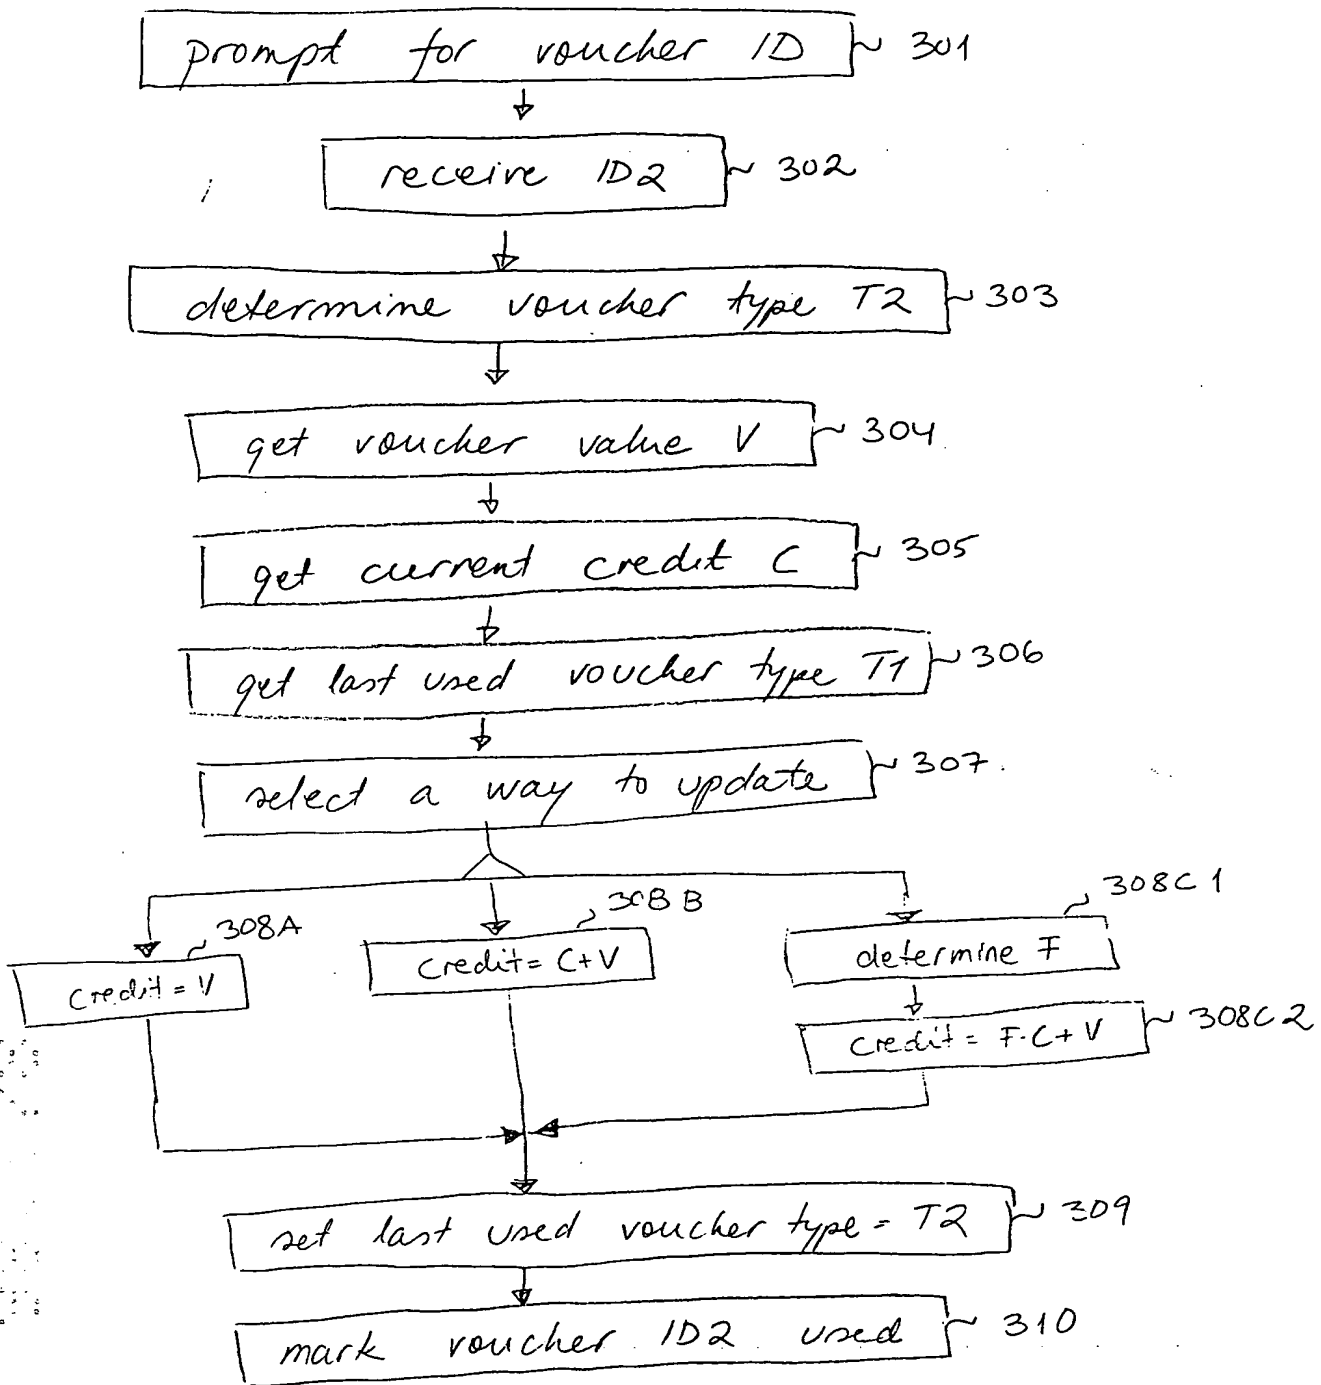 prompt for voucher ID 301
receive ID2 302
determine voucher type T2 303
get voucher value V 304
get current credit C 305
get last used voucher type T1 306
select a way to update 307
308A
308B
308C1
credit = V
credit = C+V
determine F
credit = F·C+V 308C2
set last used voucher type = T2 309
mark voucher ID2 used 310